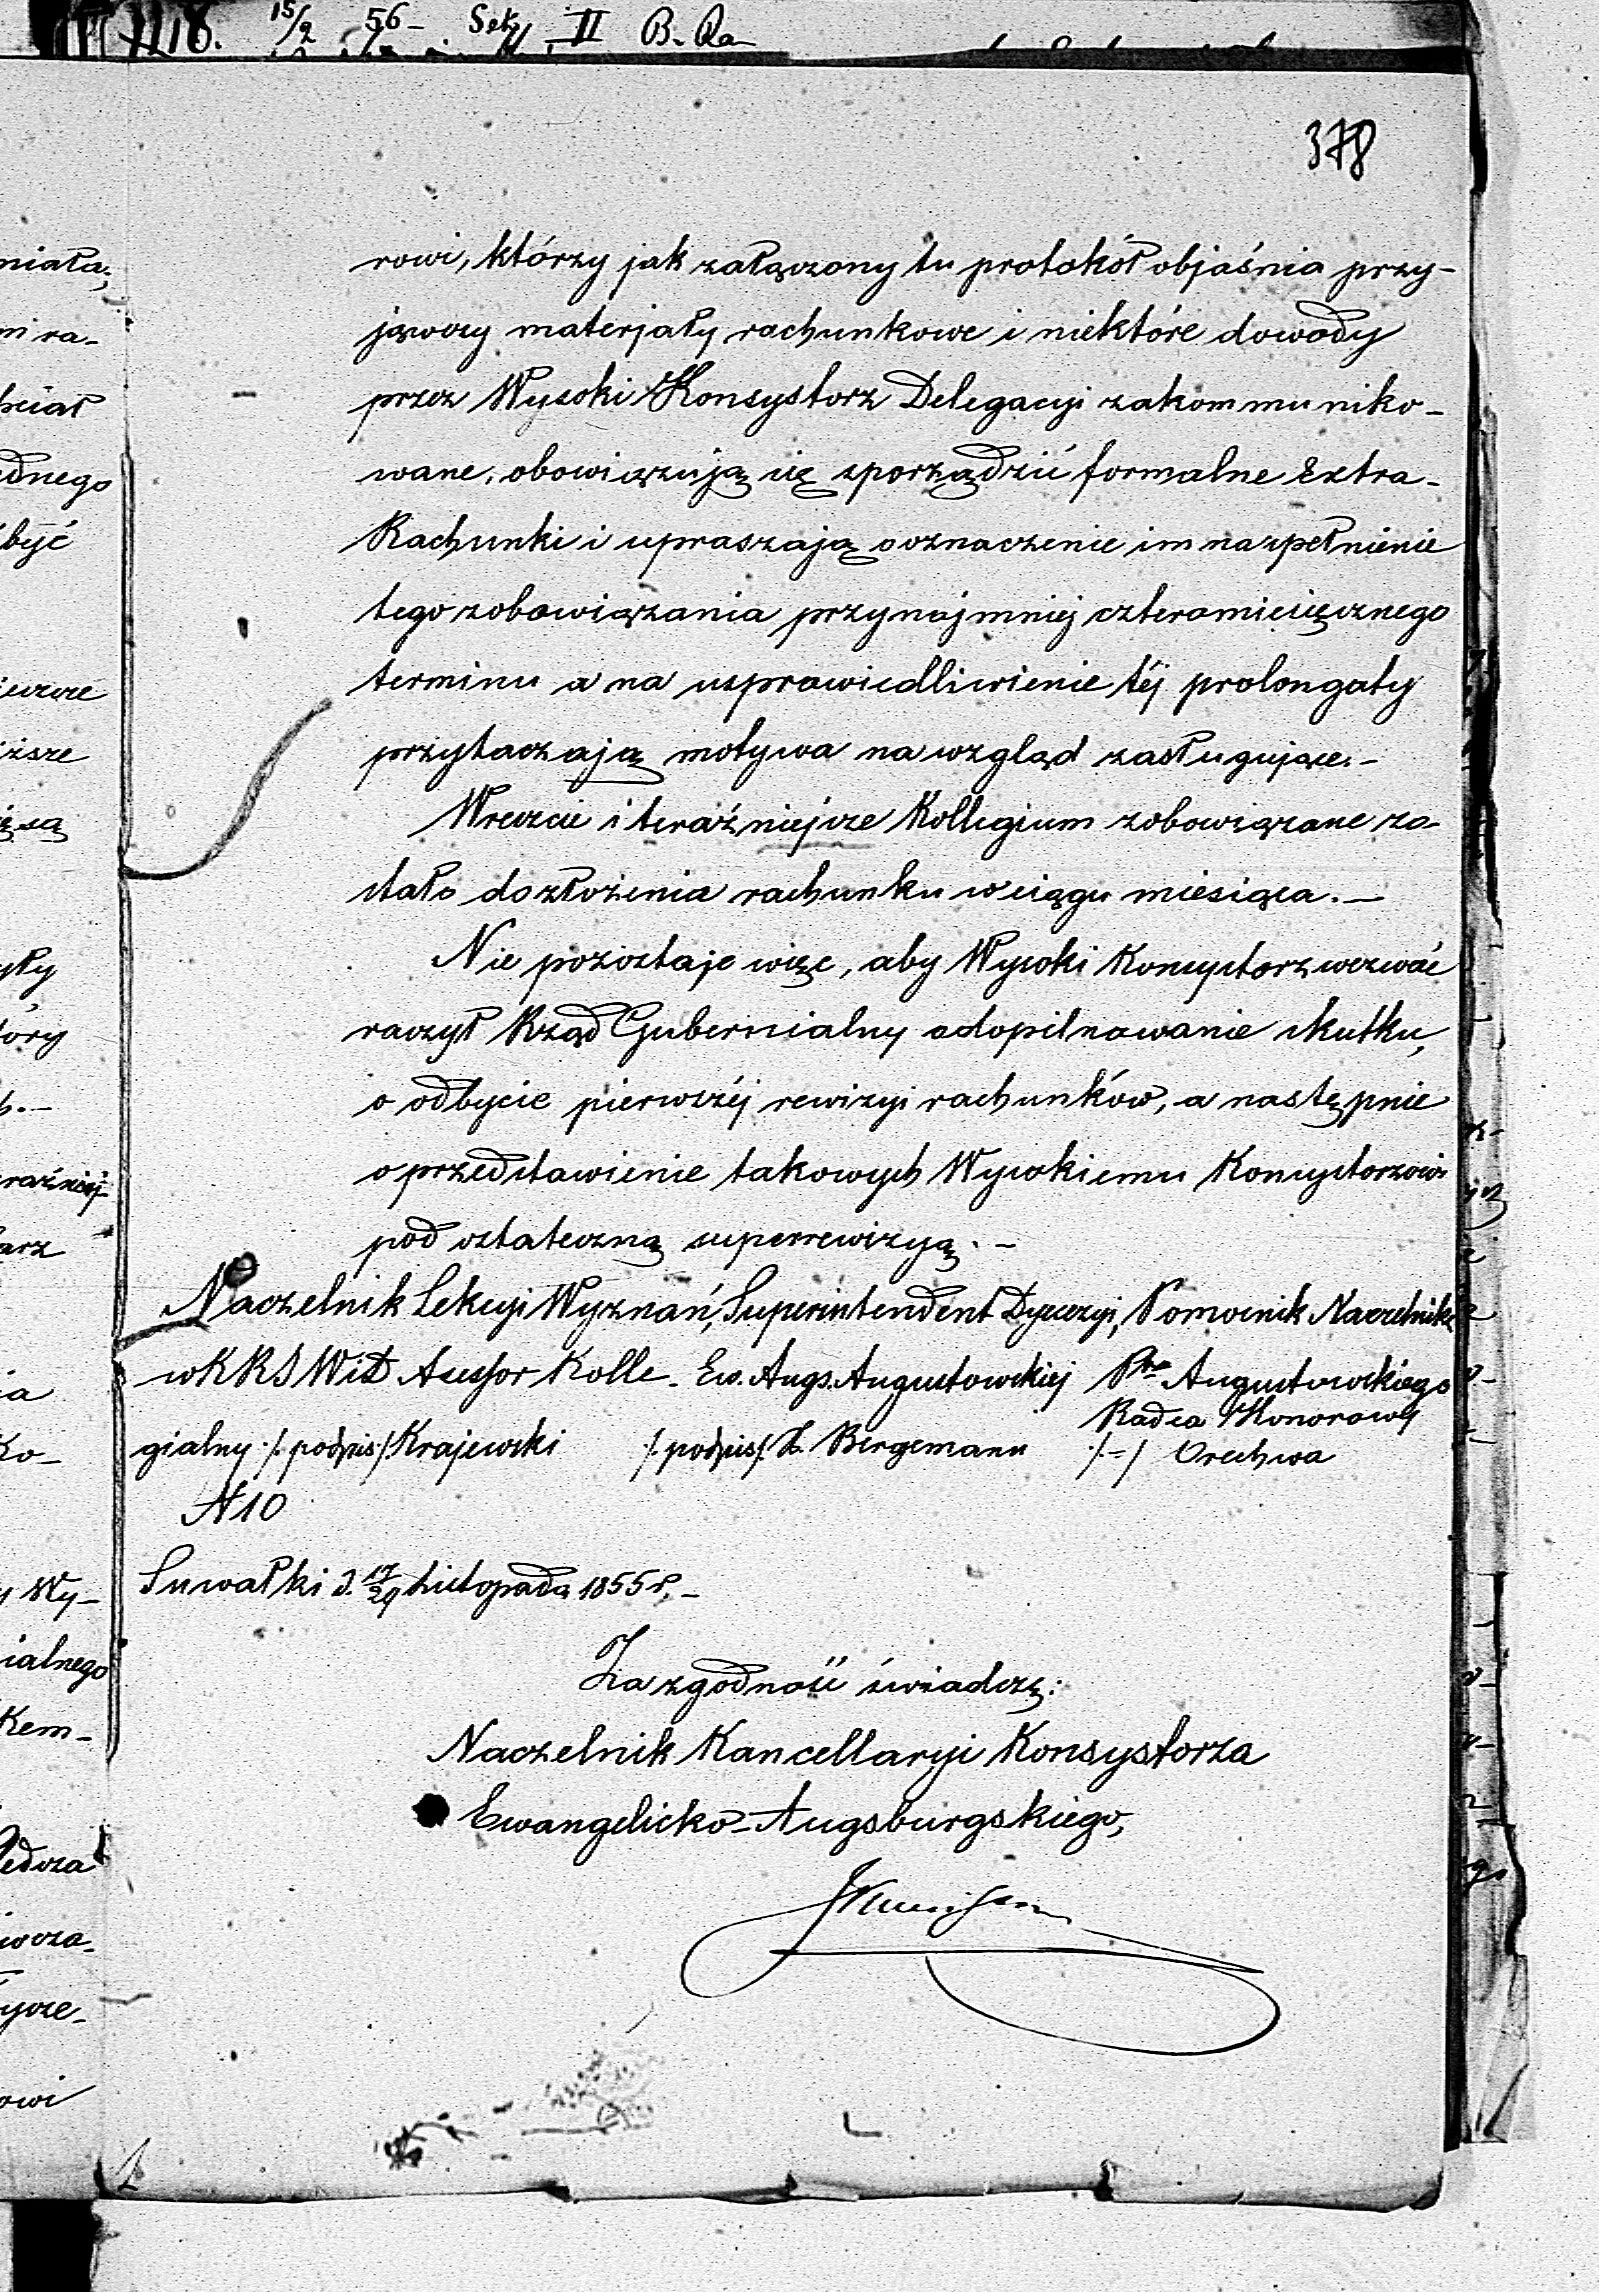 118. 15/2 56 - II
378
rowi, którzy jak załączony tu protokół objaśnia przy-
jąwszy materjały rachunkowe i niektóre dowody
przez Wysoki Konsystorz Delegacyi zakommuniko-
wane, obowiązują się sporządzić formalne Extra-
Rachunki i upraszają o oznaczenie im na spełnienie
tego zobowiązania przynajmniej czteromiesięcznego
terminu a na usprawiedliwienie téj prolongaty
przytaczają motywa na wzgląd zasługujące.-
Wreszcie i teraźniejsze Kollegium zobowiązane zo-
stało do złożenia rachunku w ciągu miesiąca.-
Nie pozostaje więc, aby Wysoki Konsystorz wezwać
raczył Rząd Gubernialny o dopilnowanie skutku,
o odbycie pierwszéj rewizyi rachunków, a następnie
o przedstawienie takowych Wysokiemu Konsystorzowi
pod ostateczną superrewizyą.-
Naczelnik Sekcyi Wyznań, Superintendent Dyecezyi, Pomocnik Naczelnika
w KRSWiD Asessor Kolle- Ew. Augs. Augustowskiej Ptu Augustowskiego
Radca Honorowy
gialny /:podpis/: Krajewski /:podpis/: L. Bergemann /:-/ Orechwa
N 10
Suwałki d. 17/29 Listopada 1855 r.-
Za zgodność świadczę:
Naczelnik Kancellaryi Konsystorza
Ewangelicko-Augsburgskiego,